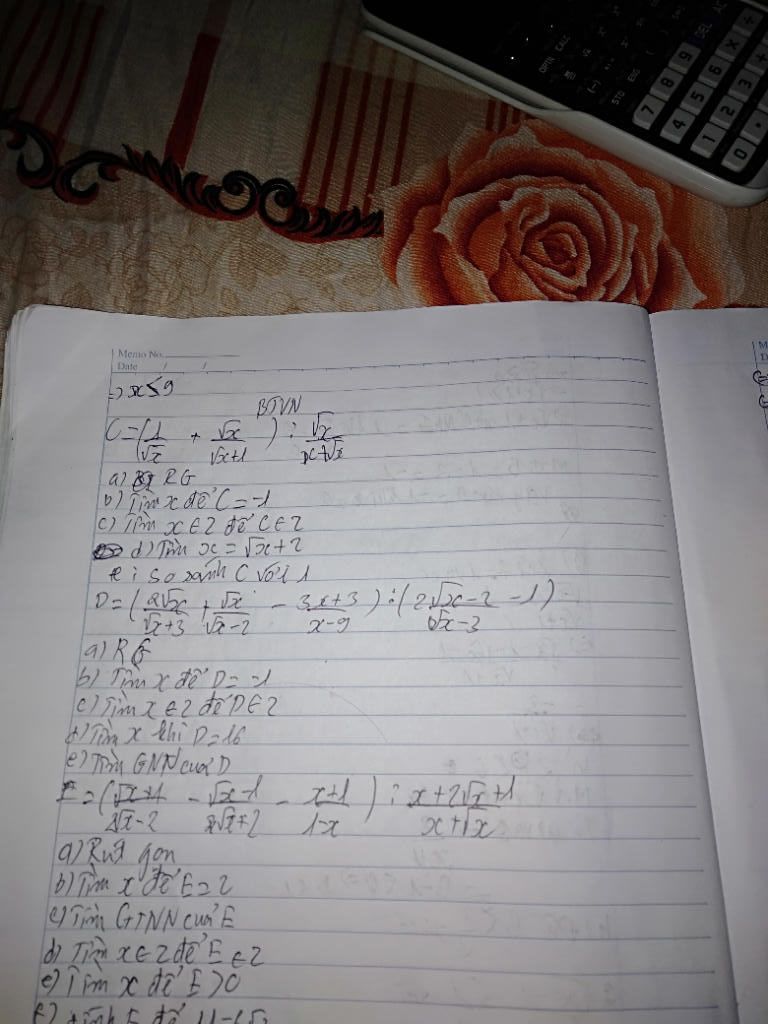 OPTN CALC
STO ENG ( )
7 8 9 DEL AC
4 5 6 × ÷
1 2 3 +
0 .
Memo No.
Date / /
=) x ≤ 9
BTVN
C = (1/√x + √x/(√x+1)) : √x/(x+√x)
a) RG
b) Tìm x để C = -1
c) Tìm x ∈ Z để C ∈ Z
d) Tìm x = √x+2
e: So sánh C với 1
D = (2√x/(√x+3) + √x/(√x-2) - (3x+3)/(x-9)) : ((2√x-2)/(√x-3) - 1)
a) RG
b) Tìm x để D = -1
c) Tìm x ∈ Z để D ∈ Z
d) Tìm x khi D = 16
e) Tìm GNN của D
E = ((√x+1)/(2√x-2) - (√x-1)/(2√x+2) - (x+1)/(1-x)) : (x+2√x+1)/(x+√x)
a) Rút gọn
b) Tìm x để E = 2
c) Tìm GTNN của E
d) Tìm x ∈ Z để E ∈ Z
e) Tìm x để E > 0